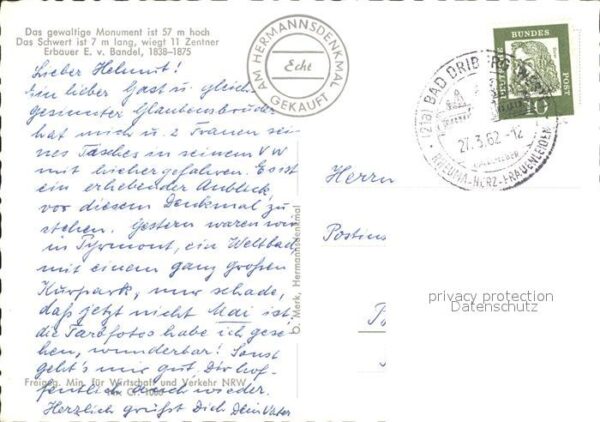 Das gewaltige Monument ist 57 m hoch
Das Schwert ist 7 m lang, wiegt 11 Zentner
Erbauer E. v. Bandel, 1838-1875
AM HERMANNSDENKMAL
Echt
GEKAUFT
Lieber Helmut!
Ein lieber Gast u. gleich
gesinnter Glaubensbruder
hat mich u. 2 Frauen sei
nes Tisches in seinem VW
mit hierher gefahren. Es ist
ein erhebender Anblick,
vor diesem Denkmal zu
stehen. Gestern waren wir
in Pyrmont, ein Weltbad
mit einem ganz großen
Kurpark, nur schade,
daß jetzt nicht Mai ist,
die Farbfotos habe ich gese
hen, wunderbar! Sonst
geht's mir gut, Dir hof-
fentlich auch wieder.
Herzlich grüßt Dich Dein Vater
Freigeg. Min. für Wirtschaft und Verkehr NRW
O. Merk, Hermannsdenkmal
DEUTSCHE
BUNDES
POST
10
(21a) BAD DRIBURG
27.3.62-12
RHEUMA-HERZ-FRAUENLEIDEN
Herrn
Postins
privacy protection
Datenschutz